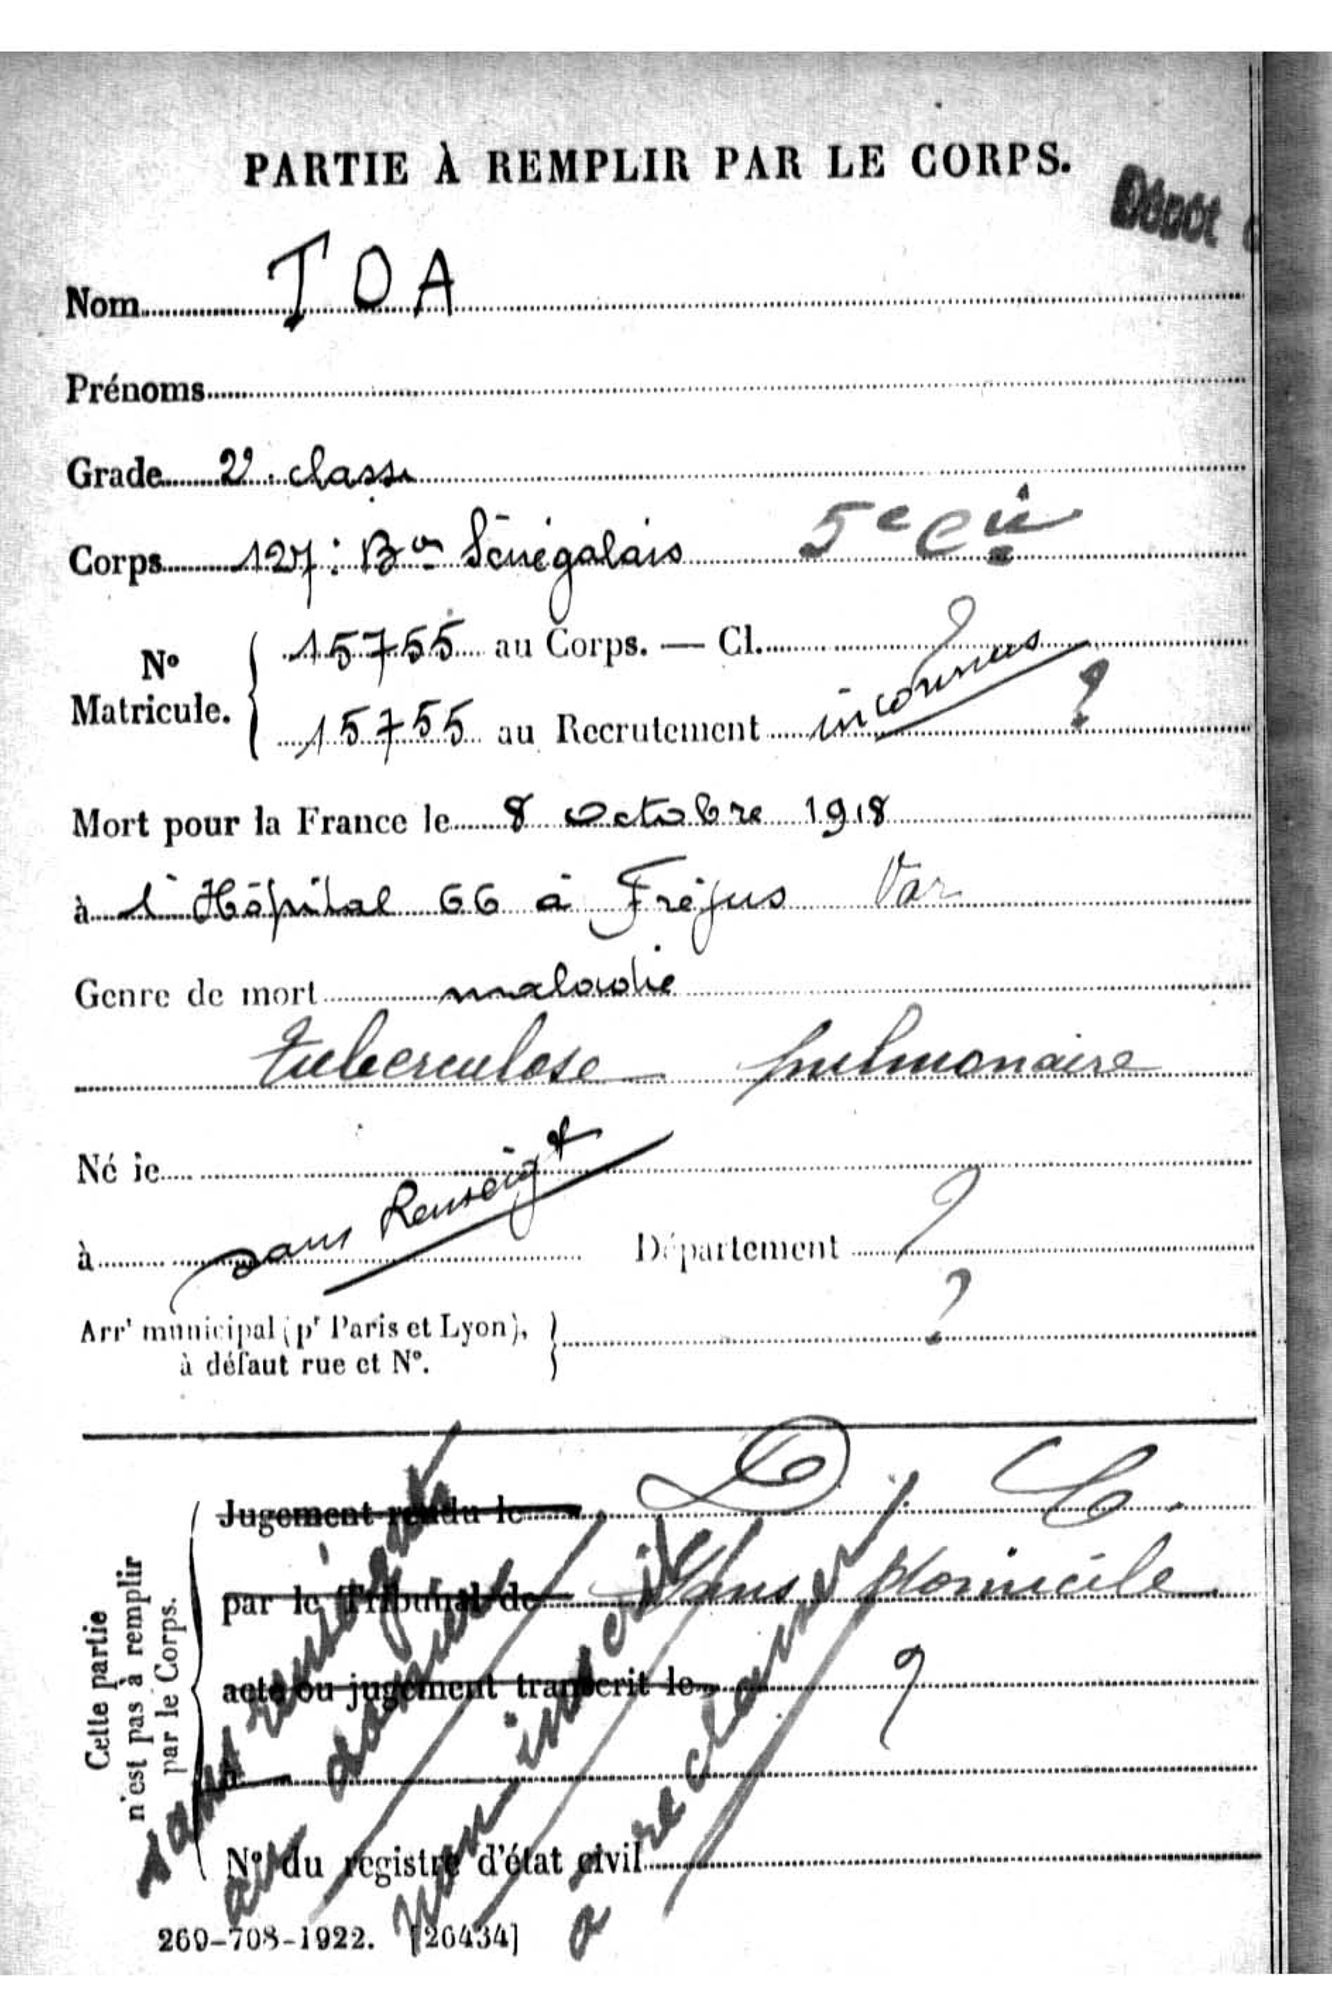 PARTIE À REMPLIR PAR LE CORPS.
Dépôt
Nom TOA
Prénoms
Grade 2e classe
Corps 127: Bon Sénégalais 5e Cie
No Matricule. 15755 au Corps. — Cl. ?
15755 au Recrutement inconnus ?
Mort pour la France le 8 octobre 1918
à l'Hôpital 66 à Fréjus Var
Genre de mort maladie
tuberculose pulmonaire
Né le
à sans Renseigt Département ?
Arrt municipal (pr Paris et Lyon), à défaut rue et No. ?
Cette partie n'est pas à remplir par le Corps.
Jugement rendu le D. C.
par le Tribunal de Sans domicile
acte ou jugement transcrit le ?
à
No du registre d'état civil
sans renseignts
au dossier
non inscrit
a réclamer
269-708-1922. [26434]